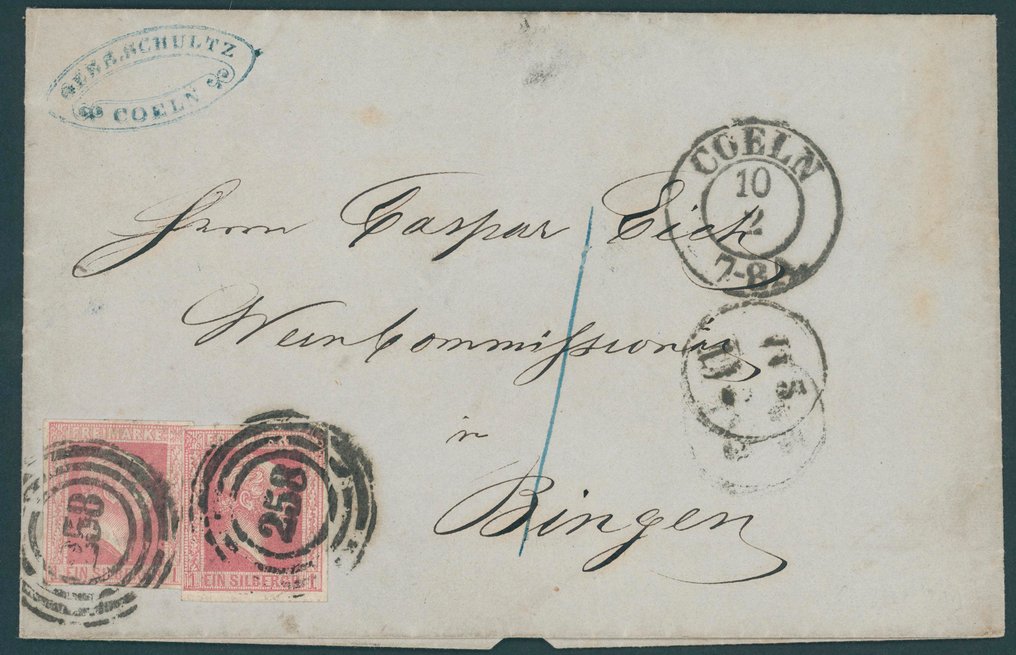 GEBR. SCHULTZ
COELN
COELN
10
2
7-8A
Herrn Caspar Eich
Wein Commissionär
in
Bingen
FREIMARKE
258
1 EIN SILBERGR. 1
258
1 EIN SILBERGR. 1